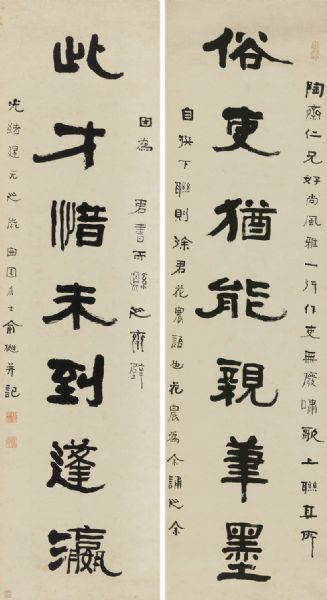 陶齋仁兄好尚風雅一行作吏無廢嘯歌上聯其所
俗吏猶能親筆墨
自撰下聯則徐君花農語也花農為余誦之余
因為君書而縣之齋壁
此才惜未到蓬瀛
光緒建元之歲曲園居士俞樾并記